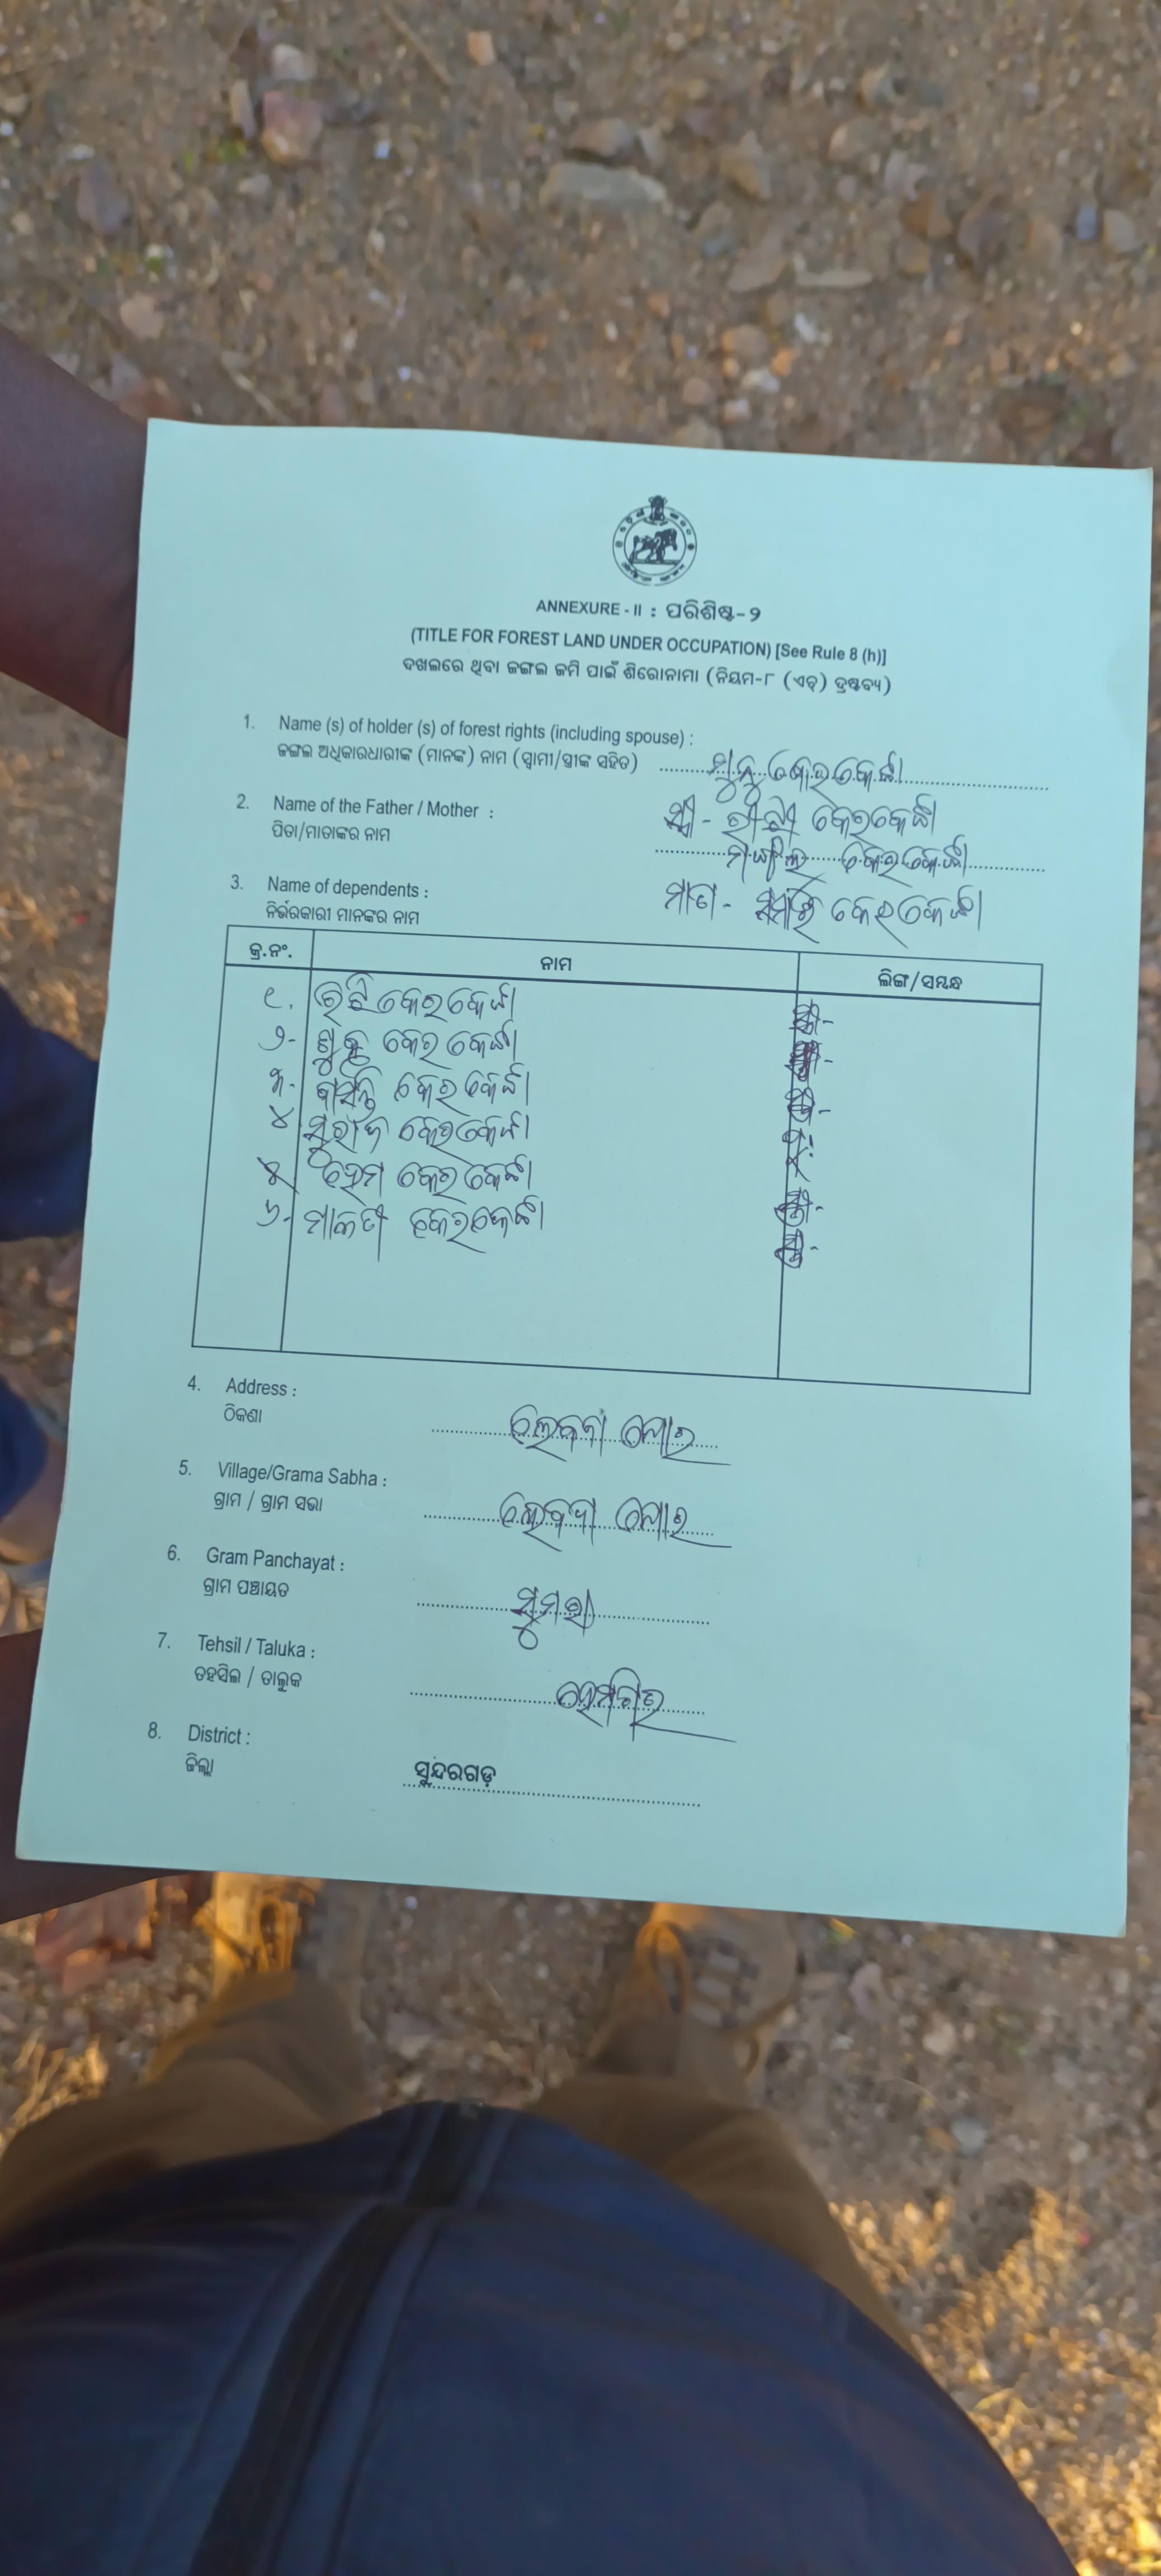 ANNEXURE - II : ପରିଶିଷ୍ଟ-୨
(TITLE FOR FOREST LAND UNDER OCCUPATION) [See Rule 8 (h)]
ଦଖଲରେ ଥିବା ଜଙ୍ଗଲ ଜମି ପାଇଁ ଶିରୋନାମା (ନିୟମ-୮ (ଏଚ୍) ଦ୍ରଷ୍ଟବ୍ୟ)
1. Name (s) of holder (s) of forest rights (including spouse) :
ଜଙ୍ଗଲ ଅଧିକାରଧାରୀଙ୍କ (ମାନଙ୍କ) ନାମ (ସ୍ୱାମୀ/ସ୍ତ୍ରୀଙ୍କ ସହିତ) କେରକେଟ୍ଟା
ସ୍ତ୍ରୀ - କେରକେଟ୍ଟା
2. Name of the Father / Mother :
ପିତା/ମାତାଙ୍କର ନାମ କେରକେଟ୍ଟା
3. Name of dependents :
ମାତା - କେରକେଟ୍ଟା
ନିର୍ଭରକାରୀ ମାନଙ୍କର ନାମ
କ୍ର.ନଂ. ନାମ ଲିଙ୍ଗ/ସମ୍ବନ୍ଧ
୧. କେରକେଟ୍ଟା ସ୍ତ୍ରୀ-
୨- କେରକେଟ୍ଟା
୩- ବାସନ୍ତି କେରକେଟ୍ଟା
୪ ସୁରାଜ କେରକେଟ୍ଟା ପୁଃ
୫ ହେମ କେରକେଟ୍ଟା ସ୍ତ୍ରୀ-
୬- ମାଳତୀ କେରକେଟ୍ଟା
4. Address :
ଠିକଣା
5. Village/Grama Sabha :
ଗ୍ରାମ / ଗ୍ରାମ ସଭା
6. Gram Panchayat :
ଗ୍ରାମ ପଞ୍ଚାୟତ ସୁମରା
7. Tehsil / Taluka :
ତହସିଲ / ତାଲୁକ ହେମଗିର
8. District :
ଜିଲ୍ଲା ସୁନ୍ଦରଗଡ଼